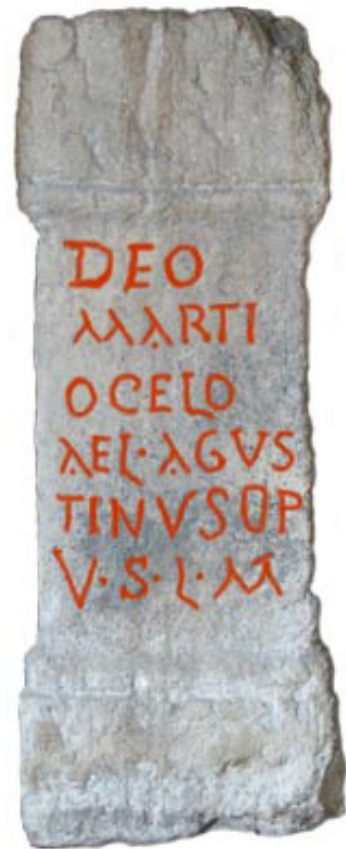 DEO
MARTI
OCELO
AEL·AGUS
TINVSOP
V·S·L·M